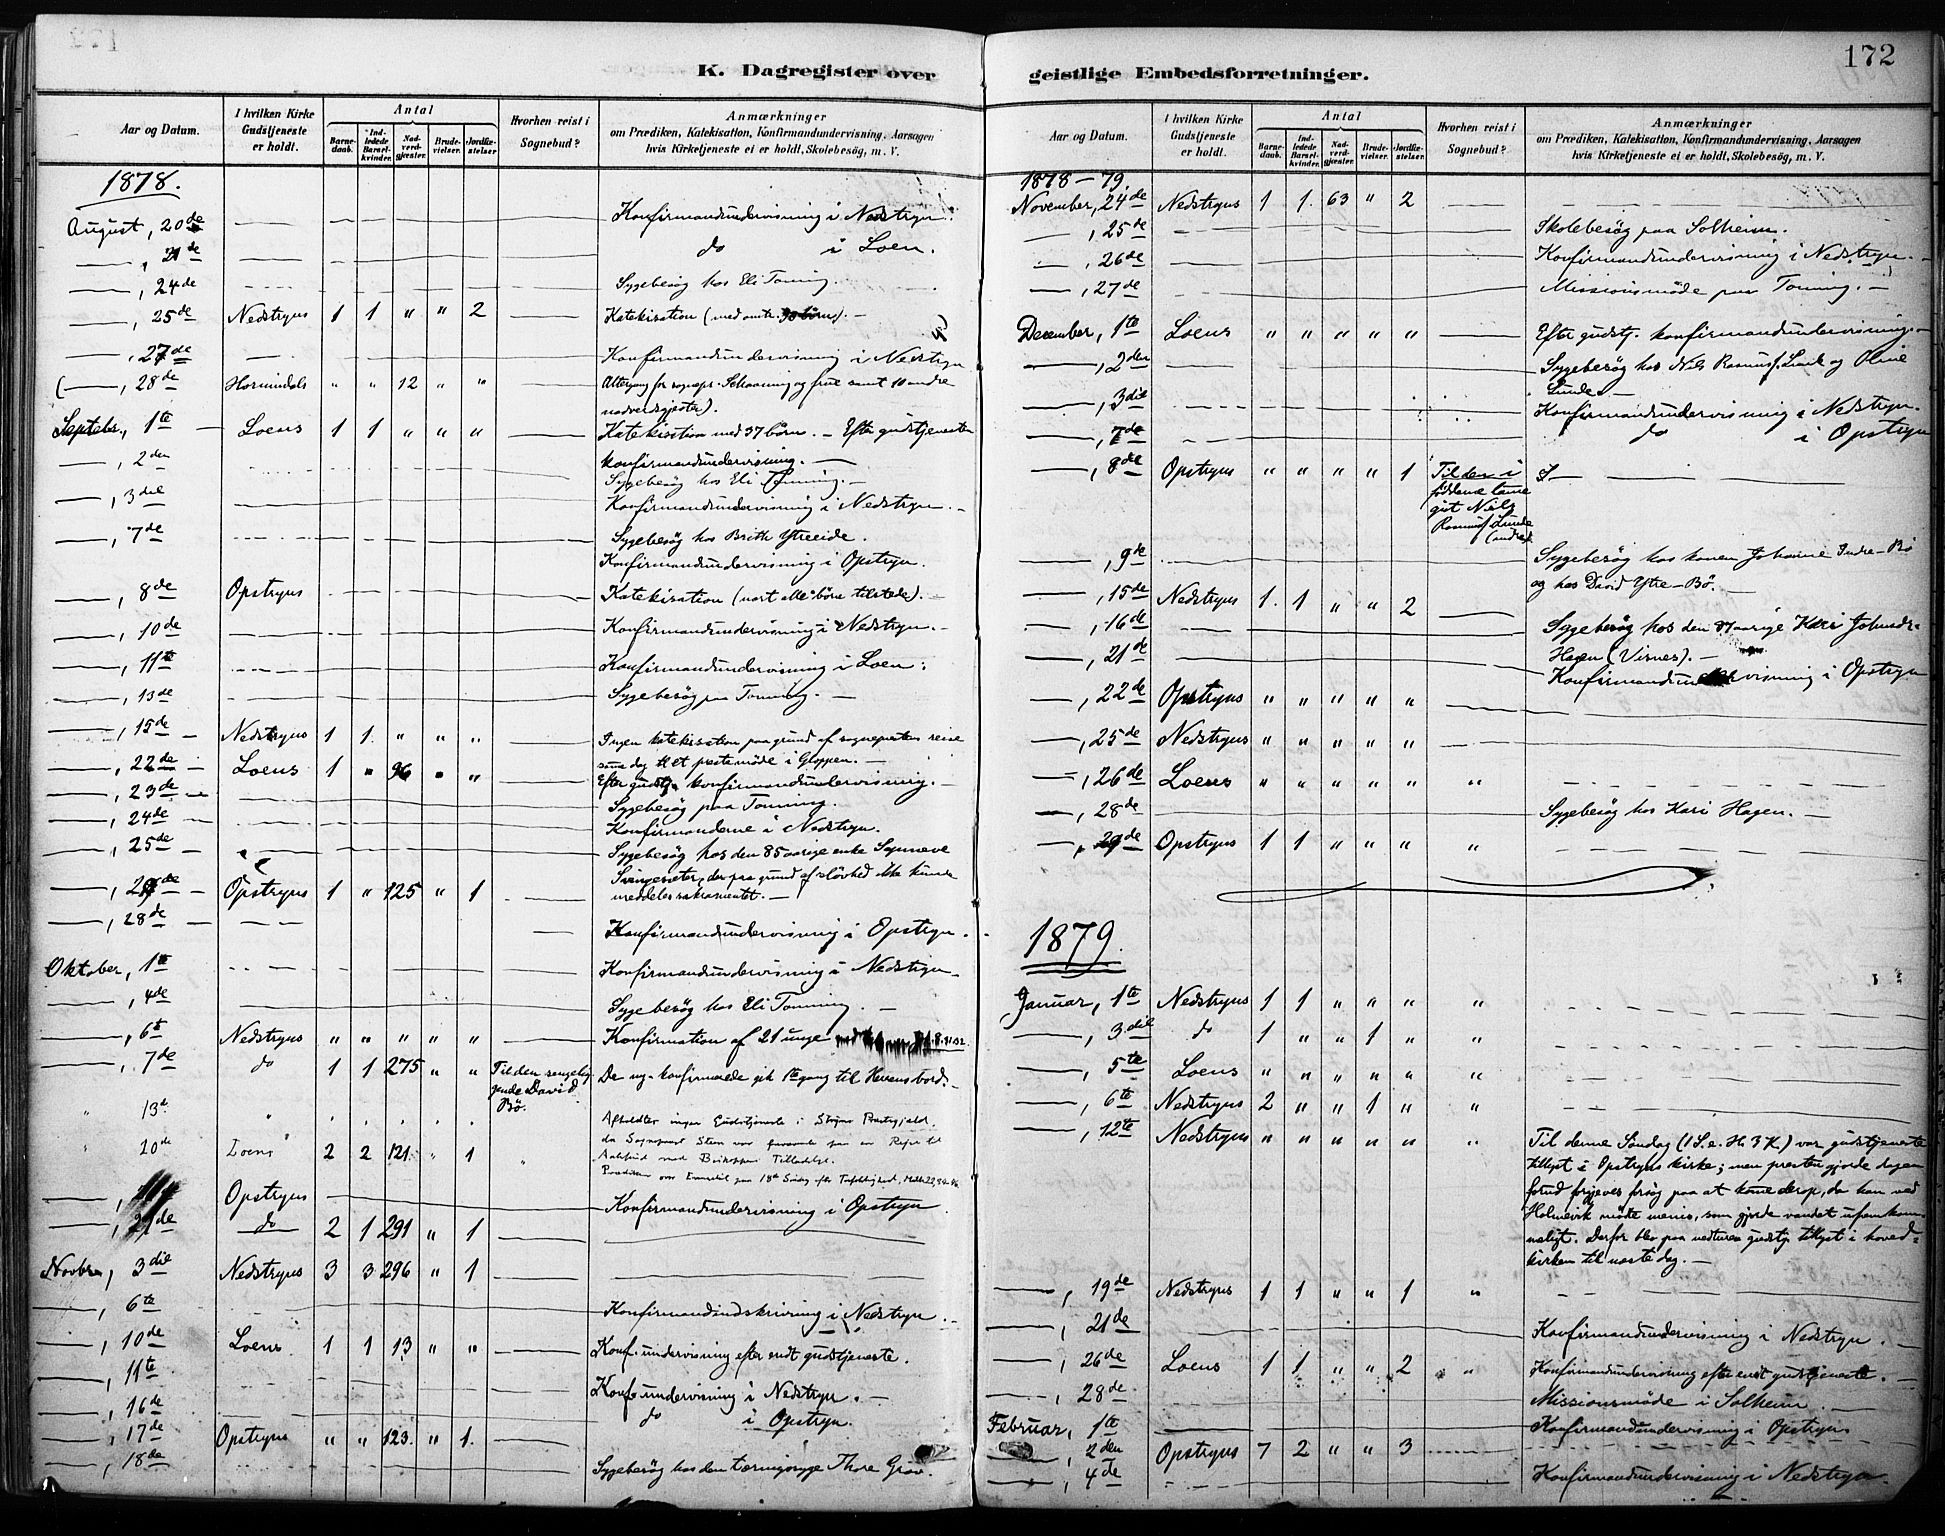 172
K. Dagregister over geistlige Embedsforretninger.
Aar og Datum.
I hvilken Kirke Gudstjeneste er holdt.
Antal
Barnedaab.
Indledede Barselkvinder.
Nadverdgjester.
Brudevielser.
Jordfæstelser
Hvorhen reist i Sognebud?
Anmærkninger
om Prædiken, Katekisation, Konfirmandundervisning, Aarsagen
hvis Kirketjeneste ei er holdt, Skolebesøg, m. V.
1878.
August, 20de — Konfirmandundervisning i Nedstryn.
—, 21de — do i Loen.
—, 24de — Sygebesøg hos Eli Tonning.
—, 25de Nedstryns 1 1 " " 2 — Katekisation (med omtr. 30 børn). —
—, 27de — Konfirmandundervisning i Nedstryn
(—, 28de Hornindals " " 12 " " Altergang for sognepr. Schaaning og frue samt 10 andre
nadverdgjester).
Septebr., 1te — Loens 1 1 " " " — Katekisation med 37 børn. — Efter gudstjenesten
konfirmandundervisning. —
—, 2den — Sygebesøg hos Eli Tonning. —
—, 3die — Konfirmandundervisning i Nedstryn. —
—, 7de — Sygebesøg hos Brith Ytreeide.
Konfirmandundervisning i Opstryn.
—, 8de Opstryns — Katekisation (vort alle børn tilstede). —
—, 10de — Konfirmandundervisning i Nedstryn. —
—, 11te — Konfirmandundervisning i Loen.
—, 13de — Sygebesøg paa Tonning. —
—, 15de — Nedstryns 1 1 " " " — Ingen katekisation paa grund af sogneprestens reise
samme dag til et prestemøde i Gloppen. —
—, 22de — Loens 1 " 96 " " — Efter gudstj. konfirmandundervisning. —
—, 23de — Sygebesøg paa Tonning.
—, 24de — Konfirmanderne i Nedstryn.
—, 25de — Sygebesøg hos den 85 aarige enke Synneve
der paa grund af sløvhed ikke kunde
meddeles sakramentet. —
—, 29de — Opstryns 1 " 125 " 1 —
—, 28de — Konfirmandundervisning i Opstryn.
Oktober, 1te — Konfirmandundervisning i Nedstryn —
—, 4de — Sygebesøg hos Eli Tonning —
—, 6te Nedstryns " " " " " Konfirmation af 21 unge
—, 7de do 1 1 275 " " Til den sengeliggende David Bø. De ny-konfirmerede gik 1te gang til Herrens bord. —
" 13de " Afholdtes ingen Gudstjeneste i Stryns Prestegjeld,
da Sogneprest Steen var
med Biskoppens Tilladelse.
" 20de Loens 2 2 121 " 1
18de Søndag efter Trefoldighed, Matth. 22, 34-46.
— Opstryns — Konfirmandundervisning i Opstryn.
—, 27de do 2 1 291 " 1 —
Novbr., 3die Nedstryns 3 3 296 " 1 —
—, 6te — Konfirmandindskrivning i Nedstryn. —
—, 10de Loens 1 1 13 " " Konf. undervisning efter endt gudstjeneste.
—, 11te — Konf. undervisning i Nedstryn. —
—, 16de — do i Opstryn.
—, 17de Opstryns " " 123 " 1.
—, 18de — Sygebesøg hos den tæringssyge Thore Grov.
Aar og Datum.
I hvilken Kirke Gudstjeneste er holdt.
Antal
Barnedaab.
Indledede Barselkvinder.
Nadverdgjester.
Brudevielser.
Jordfæstelser.
Hvorhen reist i Sognebud?
Anmærkninger
om Prædiken, Katekisation, Konfirmandundervisning, Aarsagen
hvis Kirketjeneste ei er holdt, Skolebesøg, m. V.
1878 — 79.
November, 24de Nedstryns 1 1. 63 " 2 —
—, 25de — Skolebesøg paa Solheim.
—, 26de — Konfirmandundervisning i Nedstryn. —
—, 27de — Missionsmøde paa Tonning. —
December, 1te Loens " " " " " — Efter gudstj. konfirmandundervisning. —
—, 2den — Sygebesøg hos Nils Rasmuss. Lunde og Oline
Lunde. —
—, 3die — Konfirmandundervisning i Nedstryn.
—, 7de — do i Opstryn
—, 8de Opstryns " " " " 1 Til den i
Nils
Rasmuss. Lunde
(indre).
—, 9de — Sygebesøg hos konen Johanne Indre-Bø
og hos David Ytre-Bø. —
—, 15de Nedstryns 1. 1 " " 2 —
—, 16de — Sygebesøg hos den 87 aarige Kari Johnsdr.
Hagen (Visnes). —
—, 21de — Konfirmandundervisning i Opstryn
—, 22de Opstryns " " " " " —
—, 25de Nedstryns " " " " " —
—, 26de Loens " " " " " "
—, 28de — Sygebesøg hos Kari Hagen. —
—, 29de Opstryns 1 1 " " " "
1879.
Januar, 1te Nedstryns 1 1 " " " "
—, 3die do 1 " " 1 " "
—, 5te Loens " " " " " "
—, 6te Nedstryns 2 " " 1 " "
—, 12te Nedstryns " " " " " " Til denne Søndag (1 S. e. H. 3 K.) var gudstjeneste
tillyst i Opstryns kirke; men presten gjorde dagen
forud forgjæves forsøg paa at komme derop, da han ved
Holmevik mødte menis, som gjorde vandet ufremkom-
meligt. Derfor blev paa nedturen gudstj. tillyst i hoved-
kirken til næste dag. —
—, 19de Nedstryns 1 1 " " 1 "
—, 21de — Konfirmandundervisning i Nedstryn. —
—, 26de Loens 1 1 " " 2 " Konfirmandundervisning efter endt gudstjeneste. —
—, 28de — Missionsmøde i Solheim. —
Februar, 1te — Konfirmandundervisning i Opstryn
—, 2den Opstryns 7 2 " " 3 —
—, 4de — Konfirmandundervisning i Nedstryn.